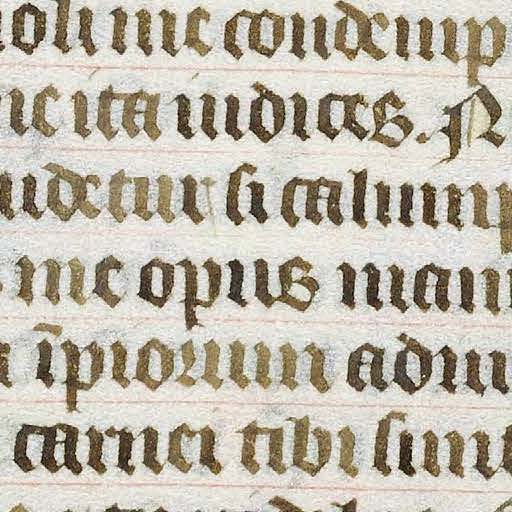 noli me condemp
me ita iudices. N
uidetur si calump
me opus manu
īpiorum adiu
carnei tibi sunt